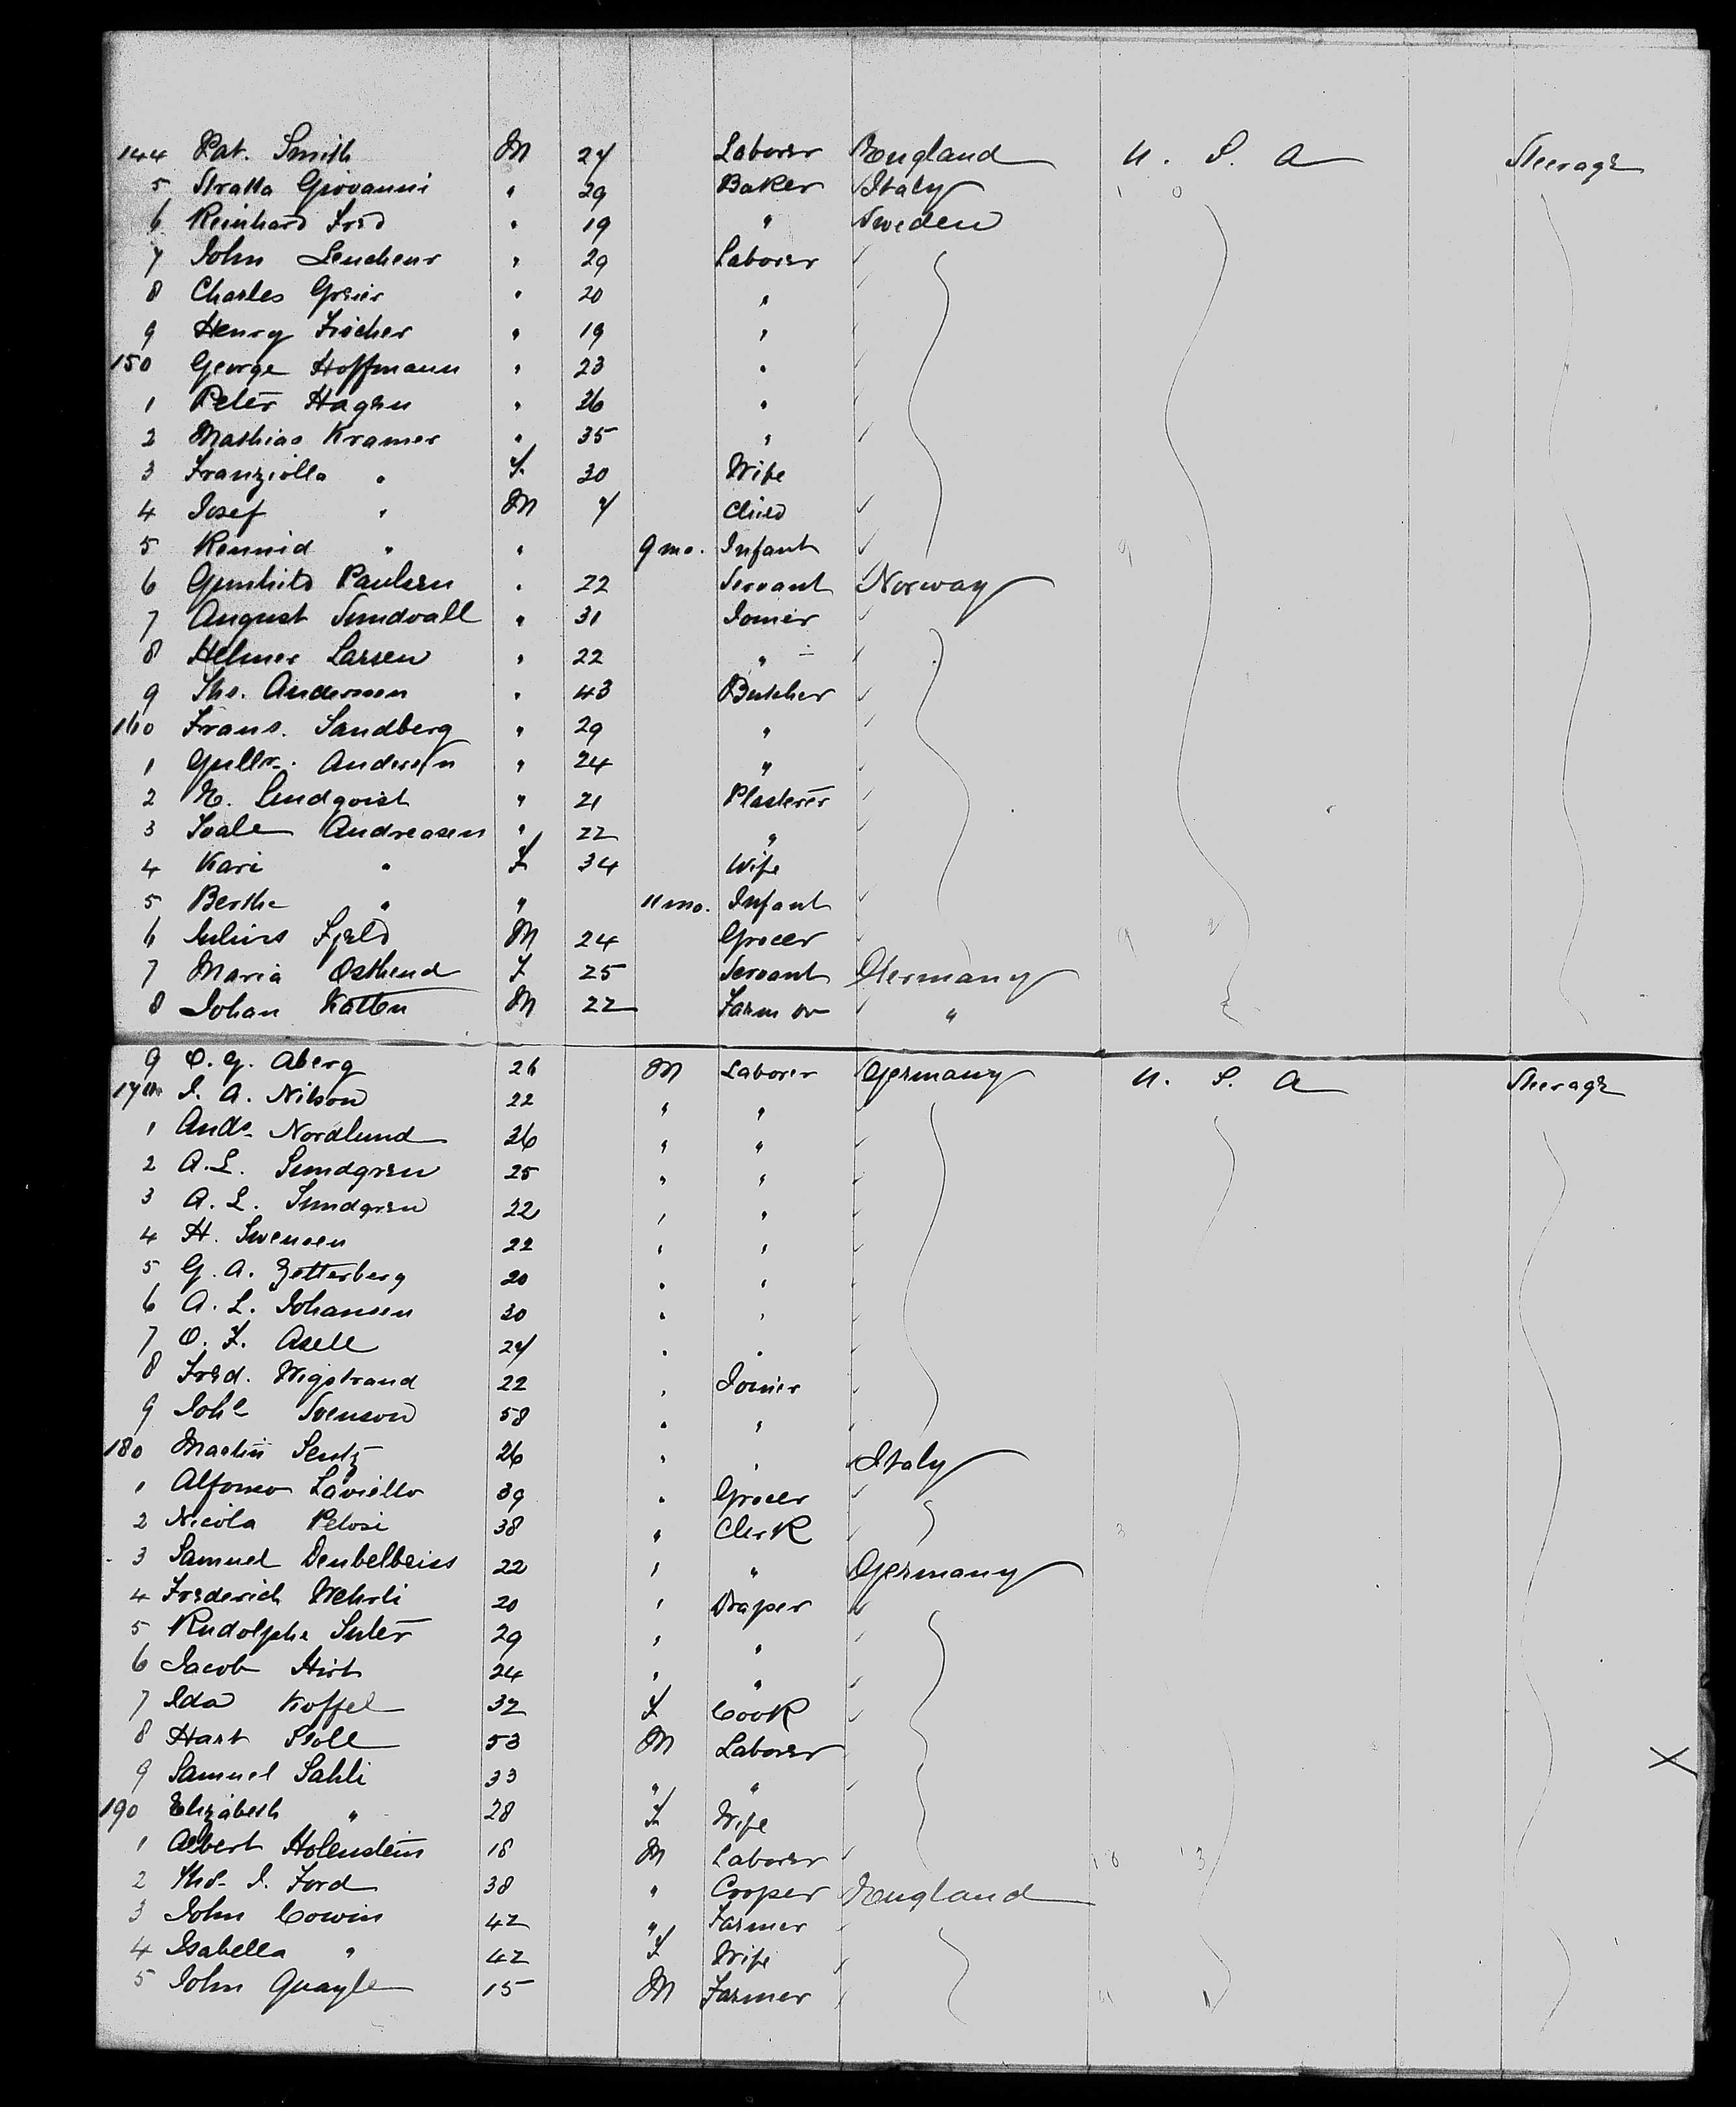 144 Pat. Smith M 27 Laborer England U. S. A Steerage
5 Stratta Giovanni " 29 Baker Italy
6 Reinhard Fred " 19 " Sweden
7 John " 29 Laborer
8 Charles Greier " 20 "
9 Henry Fischer " 19 "
150 George Hoffmann " 23 "
1 Peter Hagen " 26 "
2 Mathias Kramer " 35 "
3 Franziska " F. 30 Wife
4 Josef " M 7 Child
5 " " 9 mo. Infant
6 Gunhild Paulsen " 22 Servant Norway
7 August Sundvall " 31 Joiner
8 Helmer Larsen " 22 "
9 Tho. Andersen " 43 Butcher
160 Frans. Sandberg " 29 "
1 Andersen " 24 "
2 Lindqvist " 21 Plasterer
3 Andreasen " 22 "
4 Kari " F 34 Wife
5 Berthe " " 11 mo. Infant
6 Julius Fjeld M 24 Grocer
7 Maria Osthend F 25 Servant Germany
8 Johan Katten M 22 Farmer "
9 O. G. Aberg 26 M Laborer Germany U. S. A Steerage
170 J. A. Nilson 22 " "
1 Ands. Nordlund 26 " "
2 A. L. Sundgren 25 " "
3 A. L. Sundgren 22 " "
4 H. Swensen 22 " "
5 G. A. Zetterberg 20 " "
6 A. L. Johansen 30 " "
7 O. F. Asell 27 " "
8 Fred. Wigstrand 22 " Joiner
9 Joh Svenson 58 " "
180 Martin Sentz 26 " " Italy
1 Alfonso Laviello 39 " Grocer
2 Nicola Pelosi 38 " Clerk
3 Samuel Deubelbeiss 22 " " Germany
4 Frederich Wehrli 20 " Draper
5 Rudolphe Suter 29 " "
6 Jacob Hirt 24 " "
7 Ida Koffel 32 F Cook
8 Hart Stoll 53 M Laborer
9 Samuel Sahli 33 " "
190 Elizabeth " 28 F Wife
1 Albert Holenstein 18 M Laborer
2 Thos. J. Ford 38 " Cooper England
3 John Cowin 42 " Farmer
4 Isabella " 42 F Wife
5 John Quayle 15 M Farmer